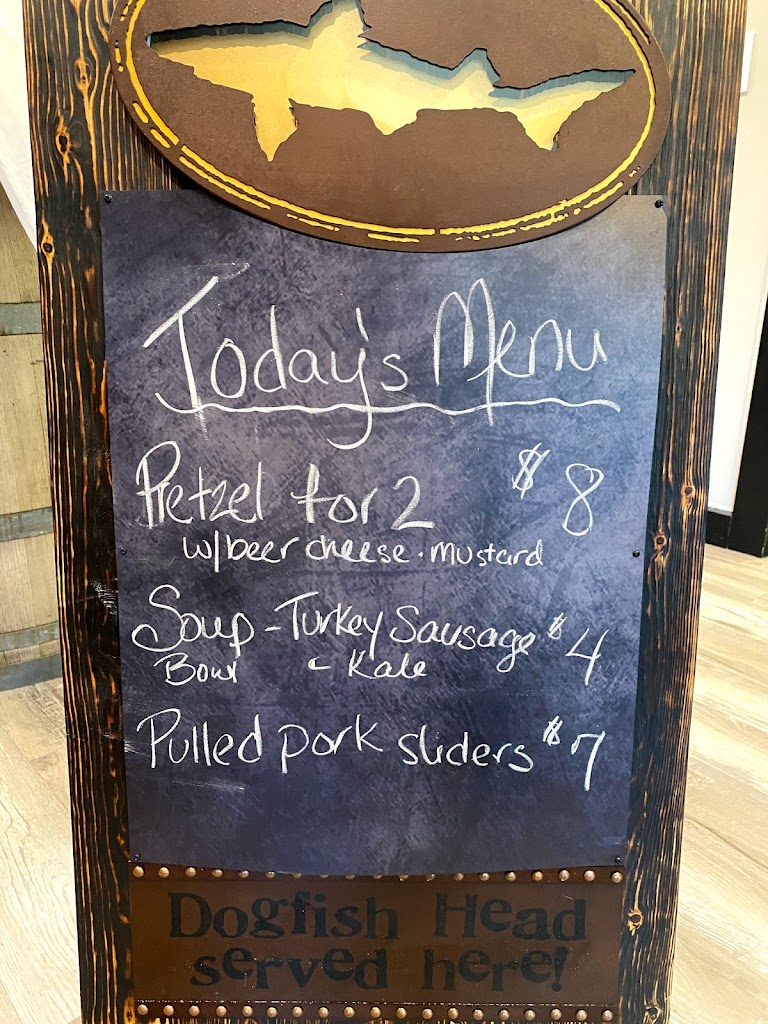 Today's Menu
Pretzel for 2 $8
w/beer cheese · mustard
Soup - Turkey Sausage $4
Bowl - Kale
Pulled pork sliders $7
Dogfish Head
served here!